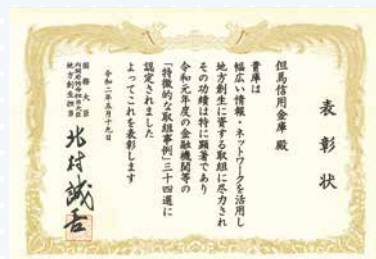 表彰状
但馬信用金庫 殿
貴庫は
幅広い情報・ネットワークを活用し
地方創生に資する取組に尽力され
その功績は特に顕著であり
令和元年度の金融機関等の
「特徴的な取組事例」三十四選に
認定されました
よってこれを表彰します
令和二年五月十九日
国務大臣
内閣府特命担当大臣
地方創生担当
北村誠吾